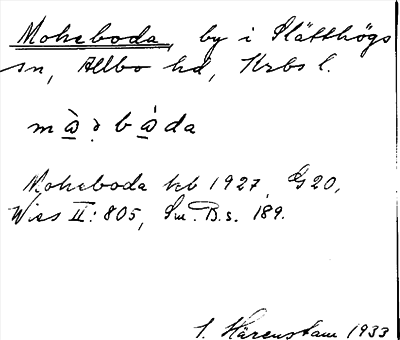 Moheboda, by i Slätthögs
sn, Allbo hd, Krbs l.
Moheboda kb 1927, G20,
Wies II: 805, Sm. B. s. 189.
I. Härenstam 1933